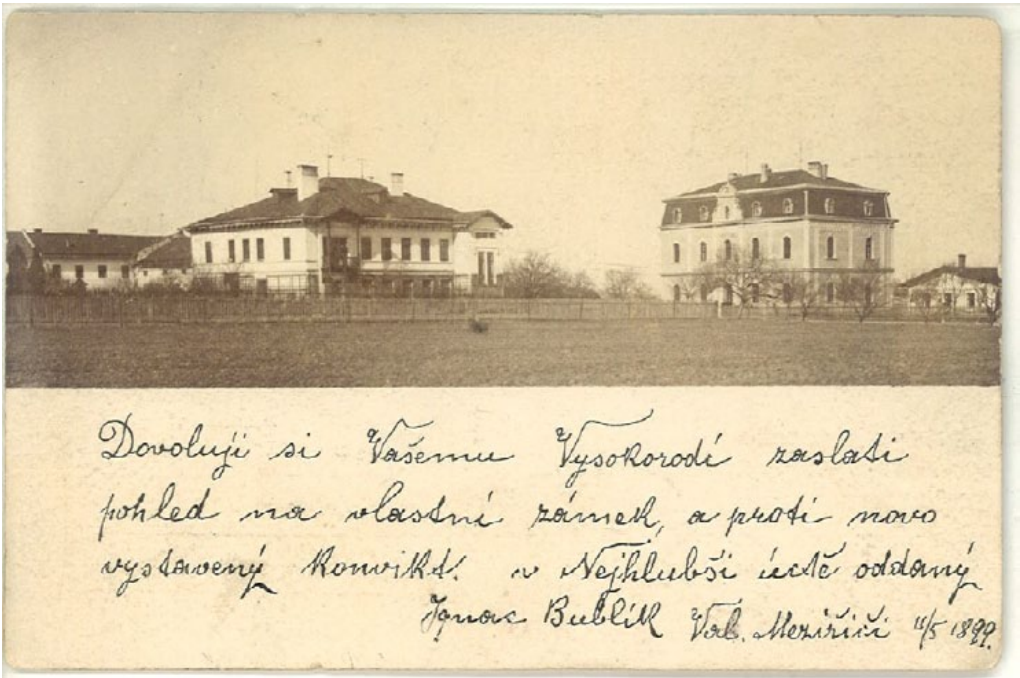 Dovoluji si Vašemu Vysokorodí zaslati
pohled na vlastní zámek, a proti novo
vystavený konvikt. v Nejhlubší úctě oddaný
Ignac Bublík Val. Meziříčí 11/5 1899.